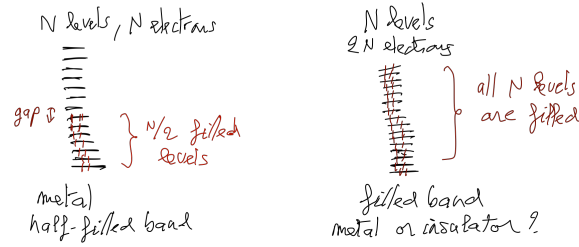 N levels, N electrons
gap
N/2 filled
levels
metal
half-filled band
N levels
2N electrons
all N levels
are filled
filled band
metal or insulator?